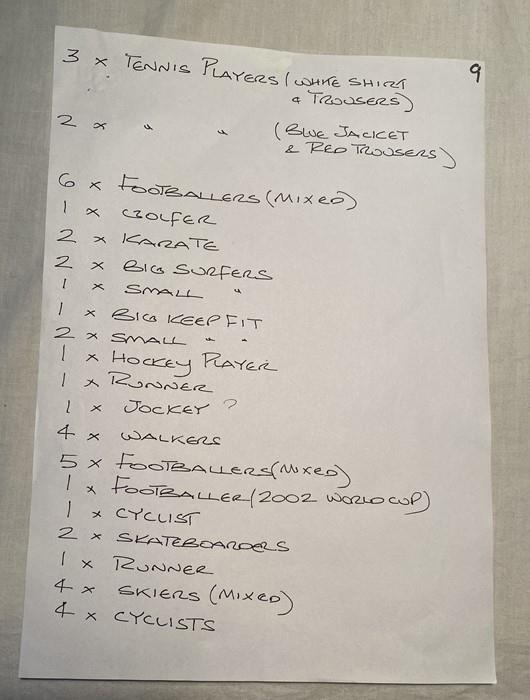 9
3 x TENNIS PLAYERS (WHITE SHIRT
& TROUSERS)
2 x " " (BLUE JACKET
& RED TROUSERS)
6 x FOOTBALLERS (MIXED)
1 x GOLFER
2 x KARATE
2 x BIG SURFERS
1 x SMALL "
1 x BIG KEEP FIT
2 x SMALL " "
1 x HOCKEY PLAYER
1 x RUNNER
1 x JOCKEY ?
4 x WALKERS
5 x FOOTBALLERS (MIXED)
1 x FOOTBALLER (2002 WORLD CUP)
1 x CYCLIST
2 x SKATEBOARDERS
1 x RUNNER
4 x SKIERS (MIXED)
4 x CYCLISTS